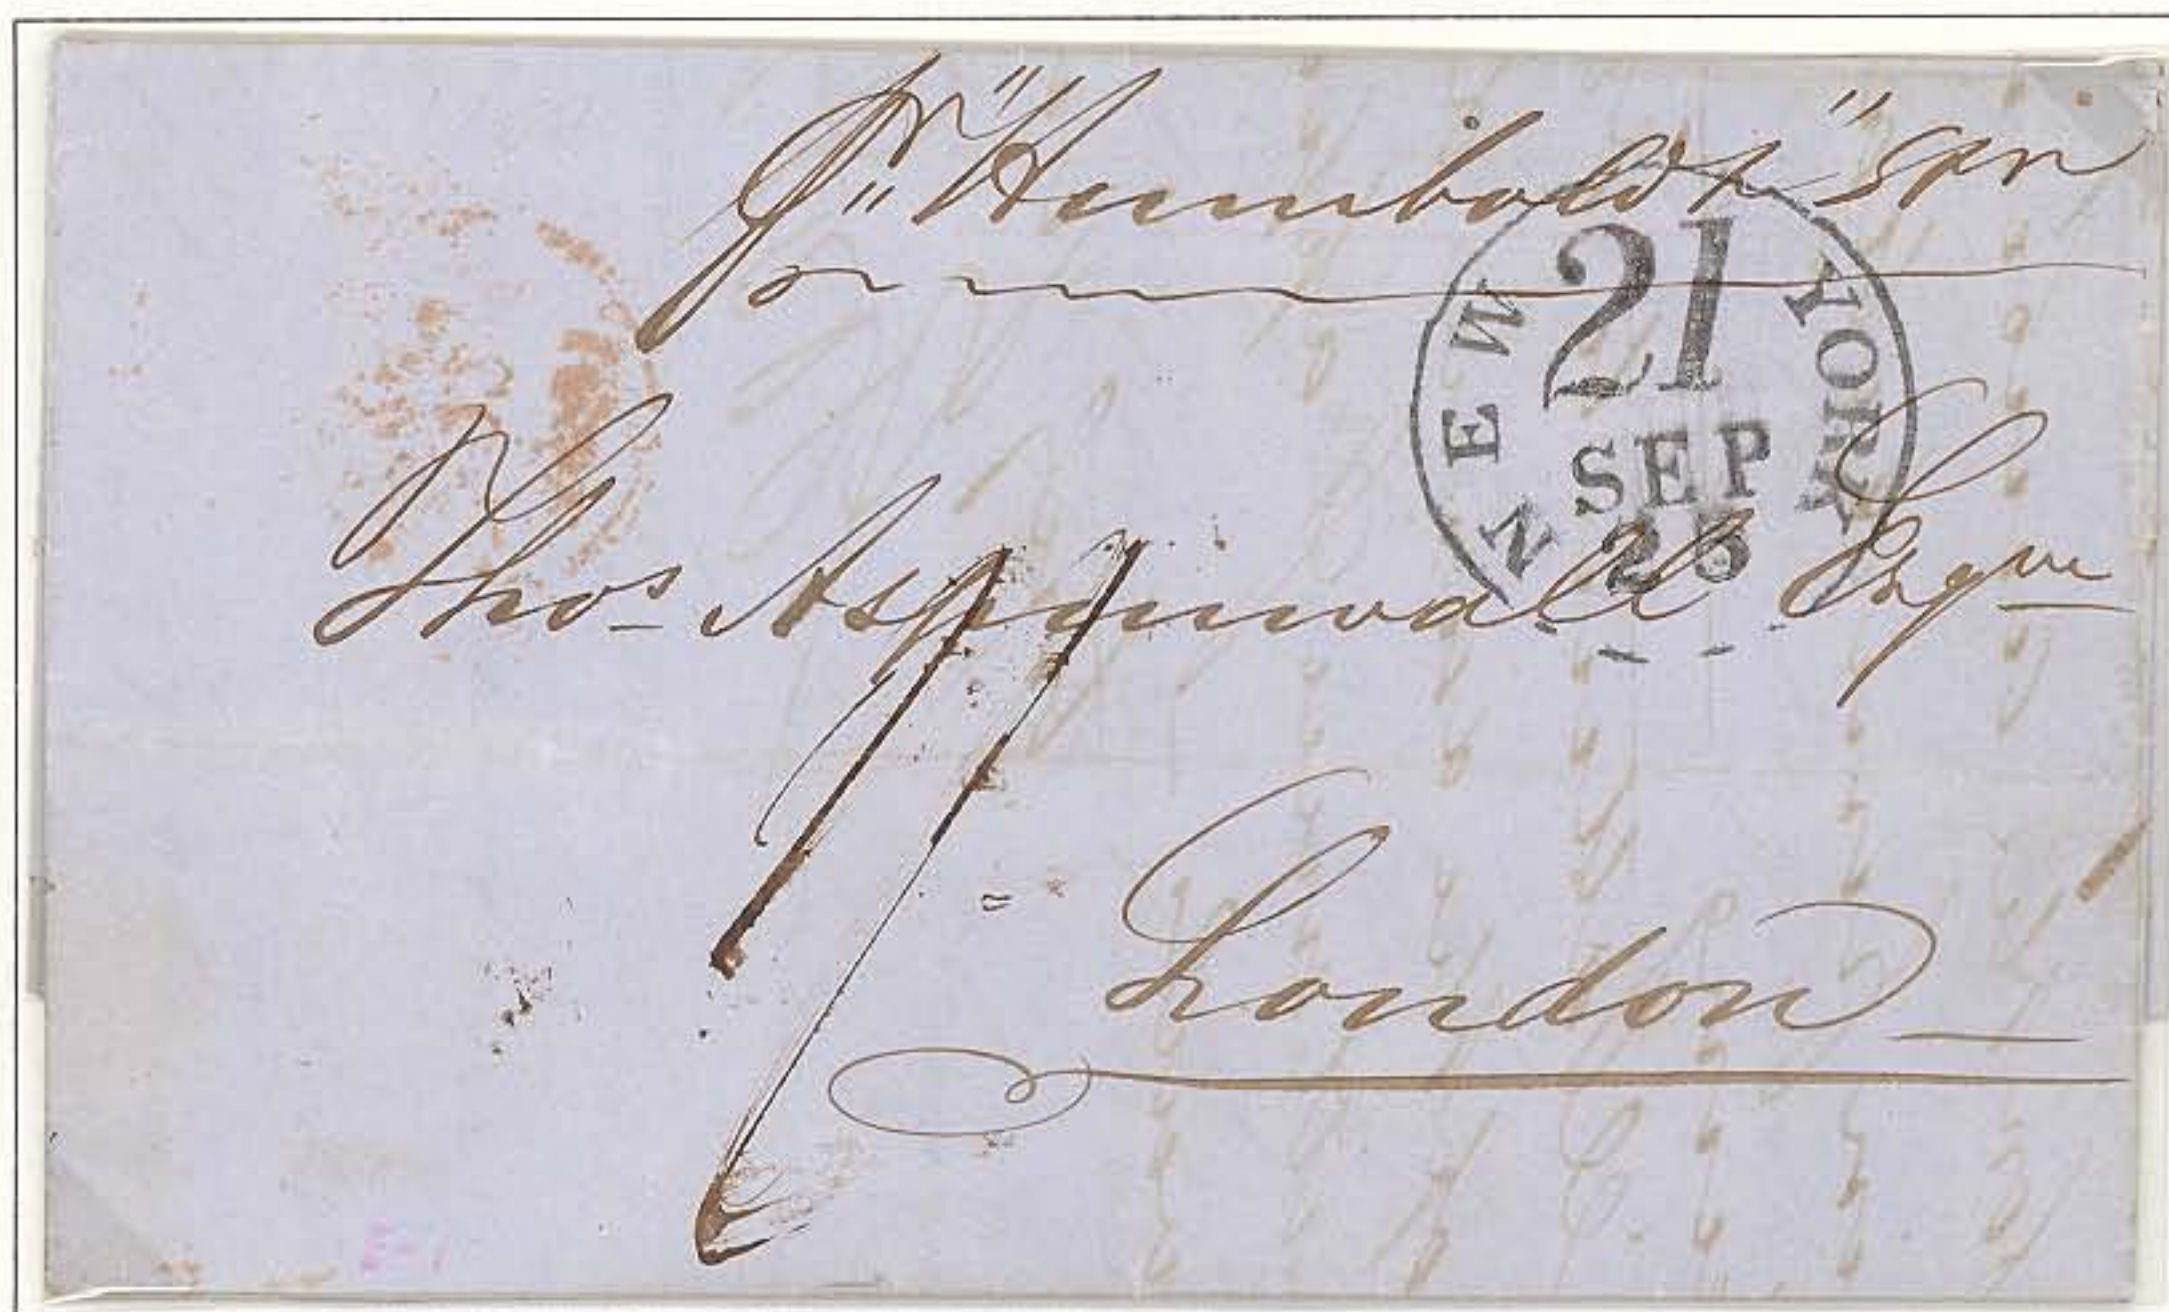 pr "Humboldt" Str
NEW YORK
21
SEP
25
Thos Aspinwall Esqre
London